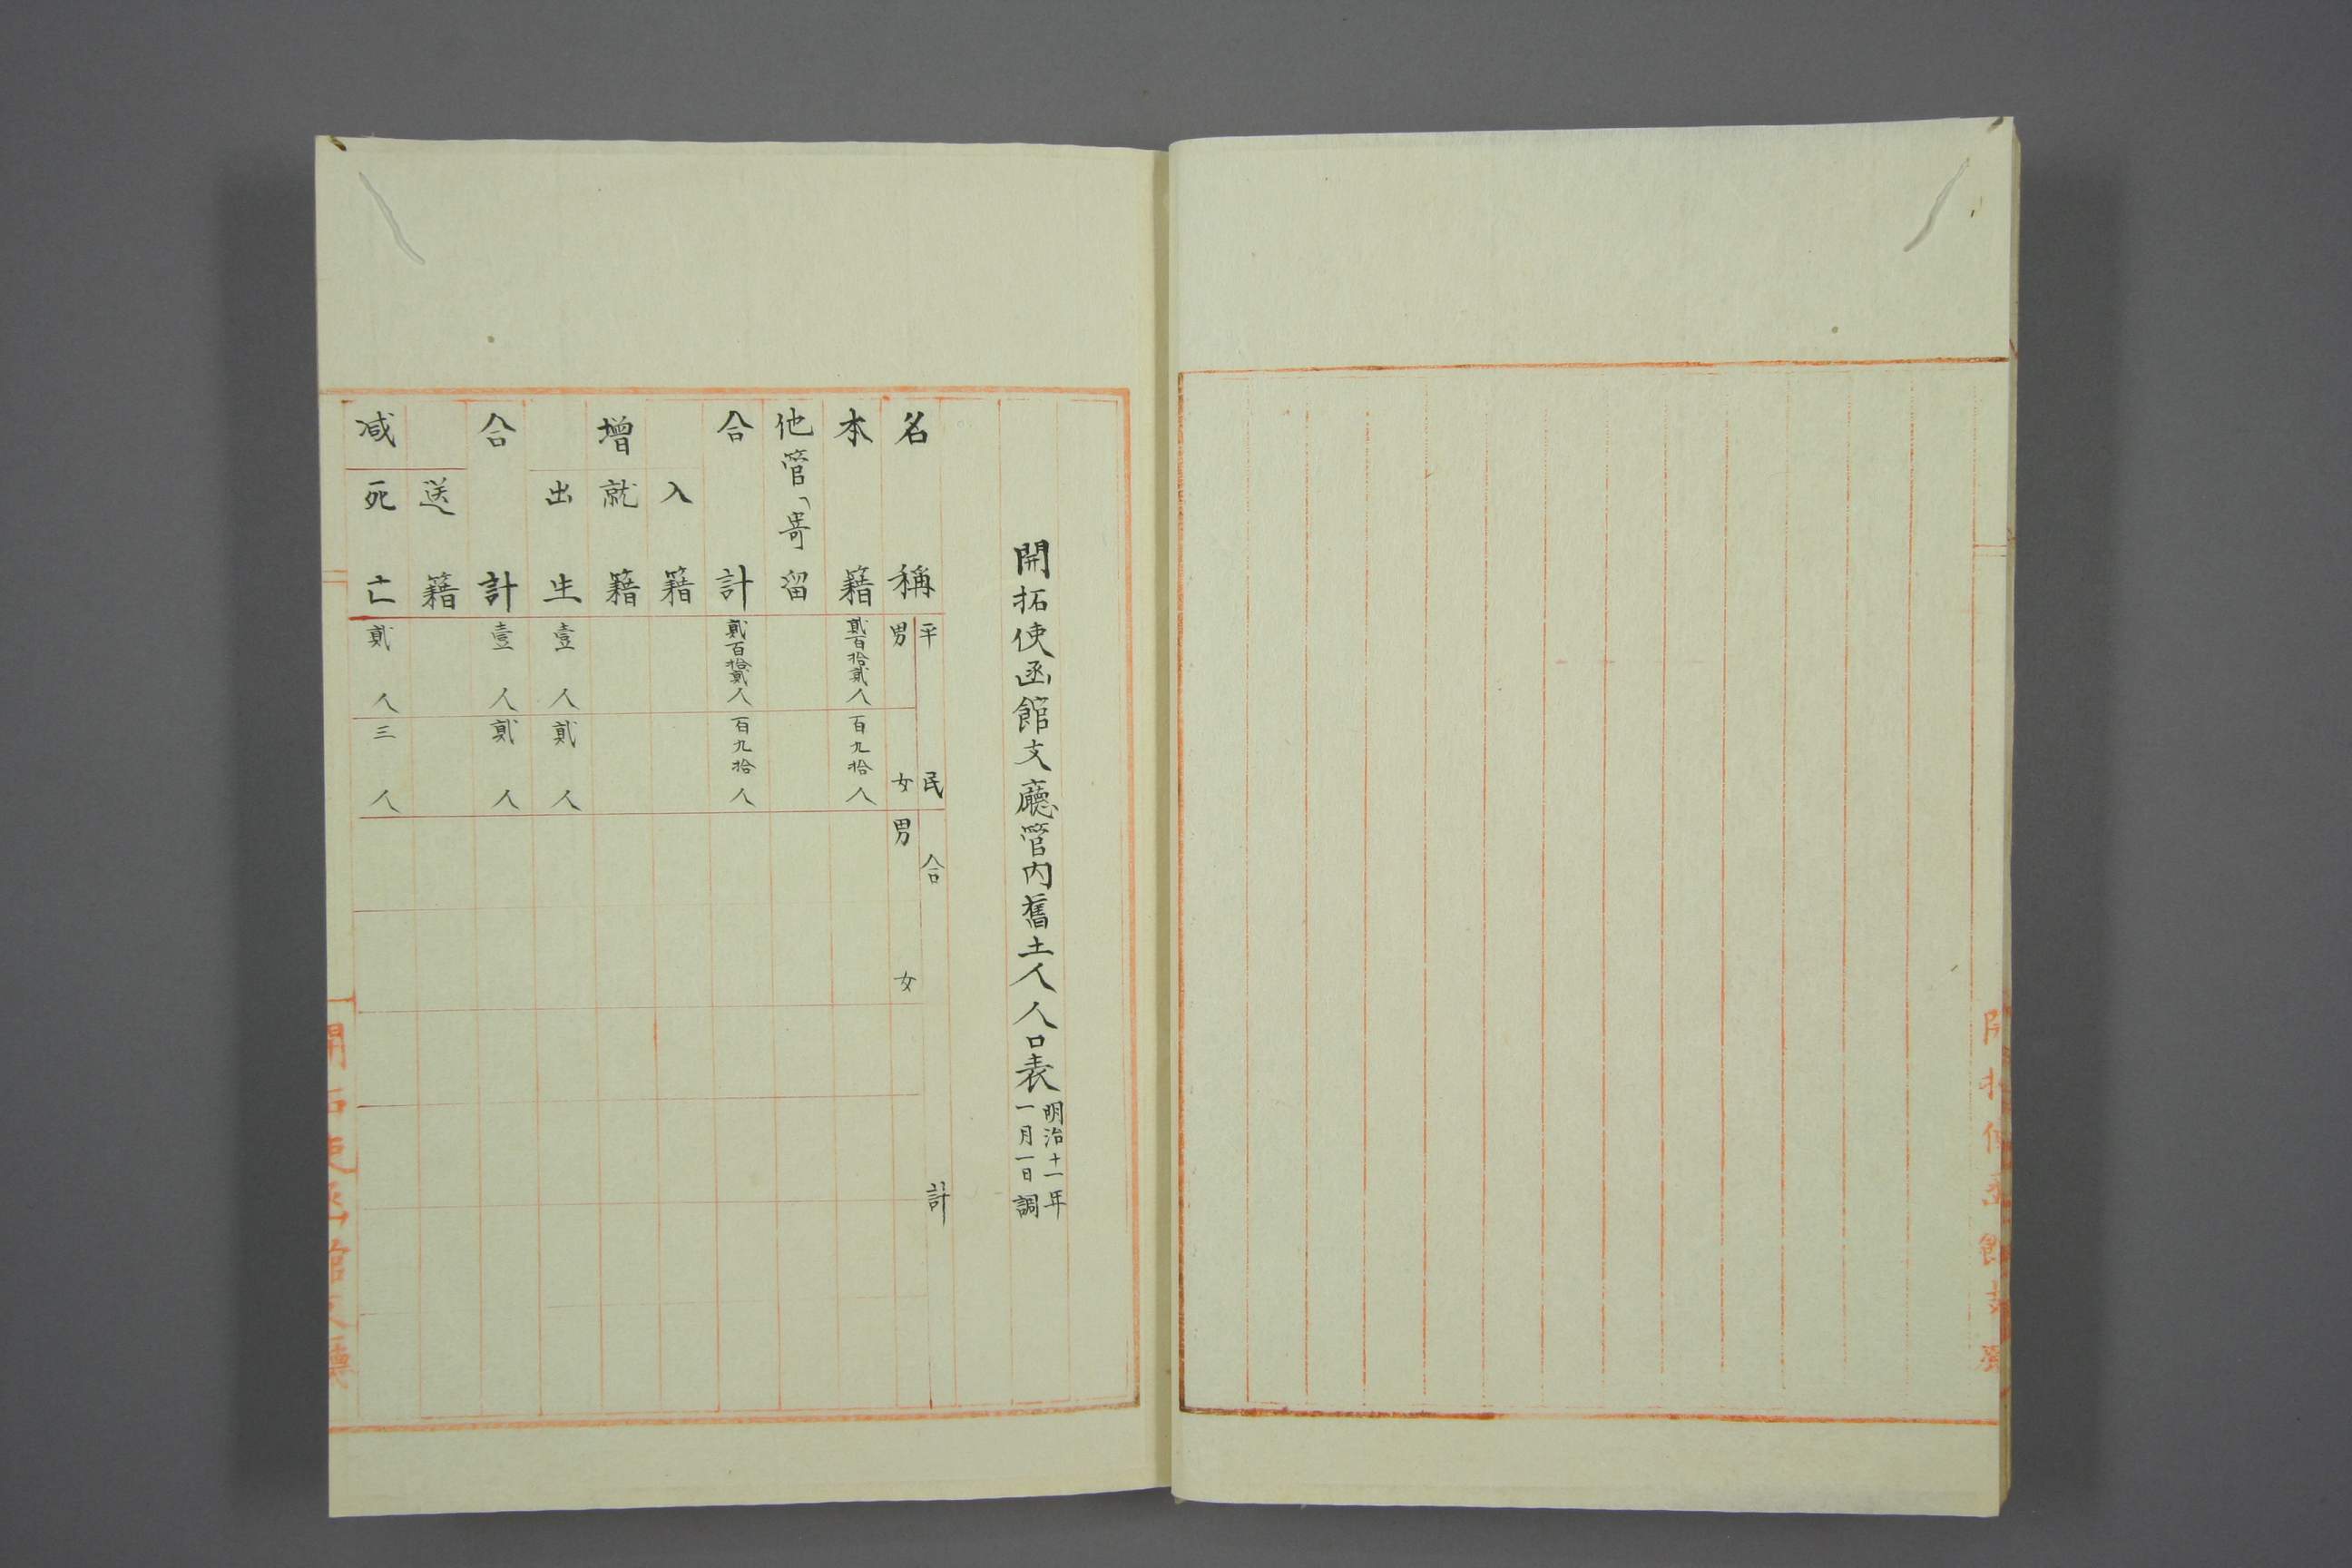 開拓使函館支廳
開拓使函館支廳管内舊土人人口表 明治十一年
一月一日調
名稱 平民 男 女 合計 男 女
本籍 貮百拾貮人 百九拾人
他管ヘ寄留
合計 貮百拾貮人 百九拾人
入籍
增 就籍
出生 壹人 貮人
合計 壹人 貮人
送籍
減 死亡 貮人 三人
開拓使函館支廳